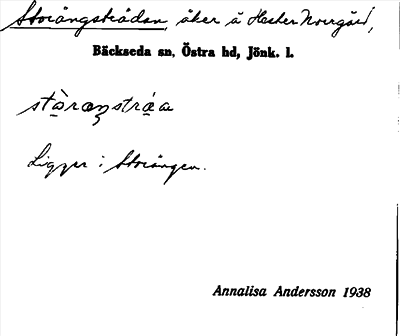 Storängsträdan, åker å Hester Norrgård,
Bäckseda sn, Östra hd, Jönk. l.
stàraŋstráa
Ligger i Storängen.
Annalisa Andersson 1938